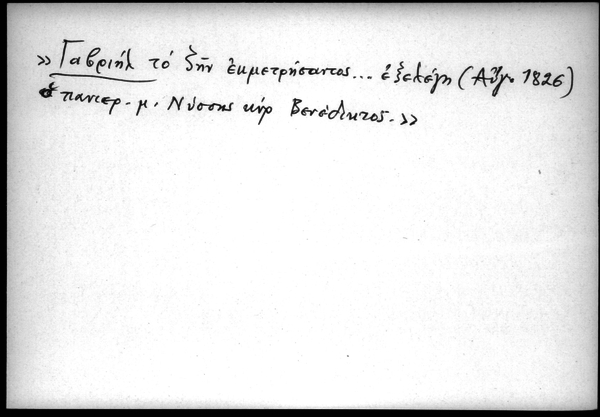 » Γαβριήλ τό ζῆν ἐκμετρήσαντος... ἐξελέγη (Αὔγ. 1826)
ὁ πανιερ. μ. Νύσσης κύρ Βενέδικτος. »